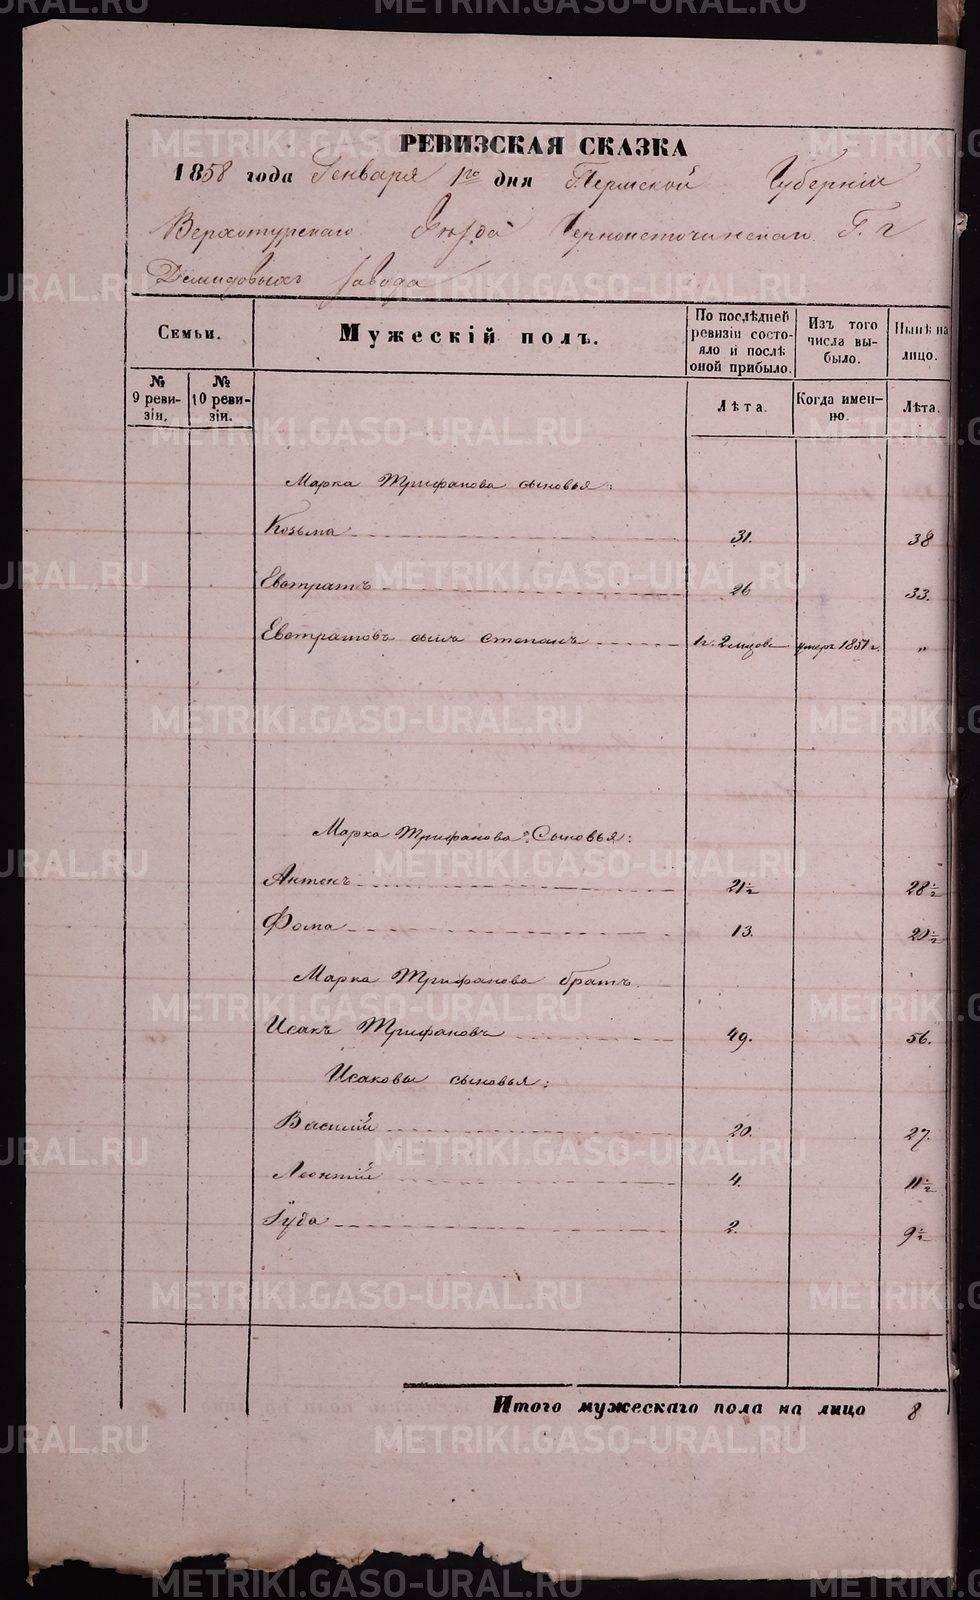 РЕВИЗСКАЯ СКАЗКА
1858 года Генваря 1го дня Пермской Губернии
Верхотурскаго Уезда Черноисточинскаго Г. г
Демидовыхъ завода
Семьи.
№ 9 ревизіи.
№ 10 ревизіи.
Мужескій полъ.
По послѣдней ревизіи состояло и послѣ оной прибыло.
Лѣта.
Изъ того числа выбыло.
Когда именно.
Нынѣ на лицо.
Лѣта.
Марка Трифанова сыновья:
Козьма 31. 38
Евстратъ 26 33.
Евстратовъ сынъ Степанъ 1 г. 2 месов умеръ 1851 г. "
Марка Трифанова Сыновья:
Антонъ 21½ 28½
Фома 13. 20½
Марка Трифанова братъ.
Исакъ Трифановъ 49. 56.
Исаковы сыновья:
Василій 20. 27.
Леонтій 4. 11½
Гуда 2. 9½
Итого мужескаго пола на лицо 8
METRIKI.GASO-URAL.RU